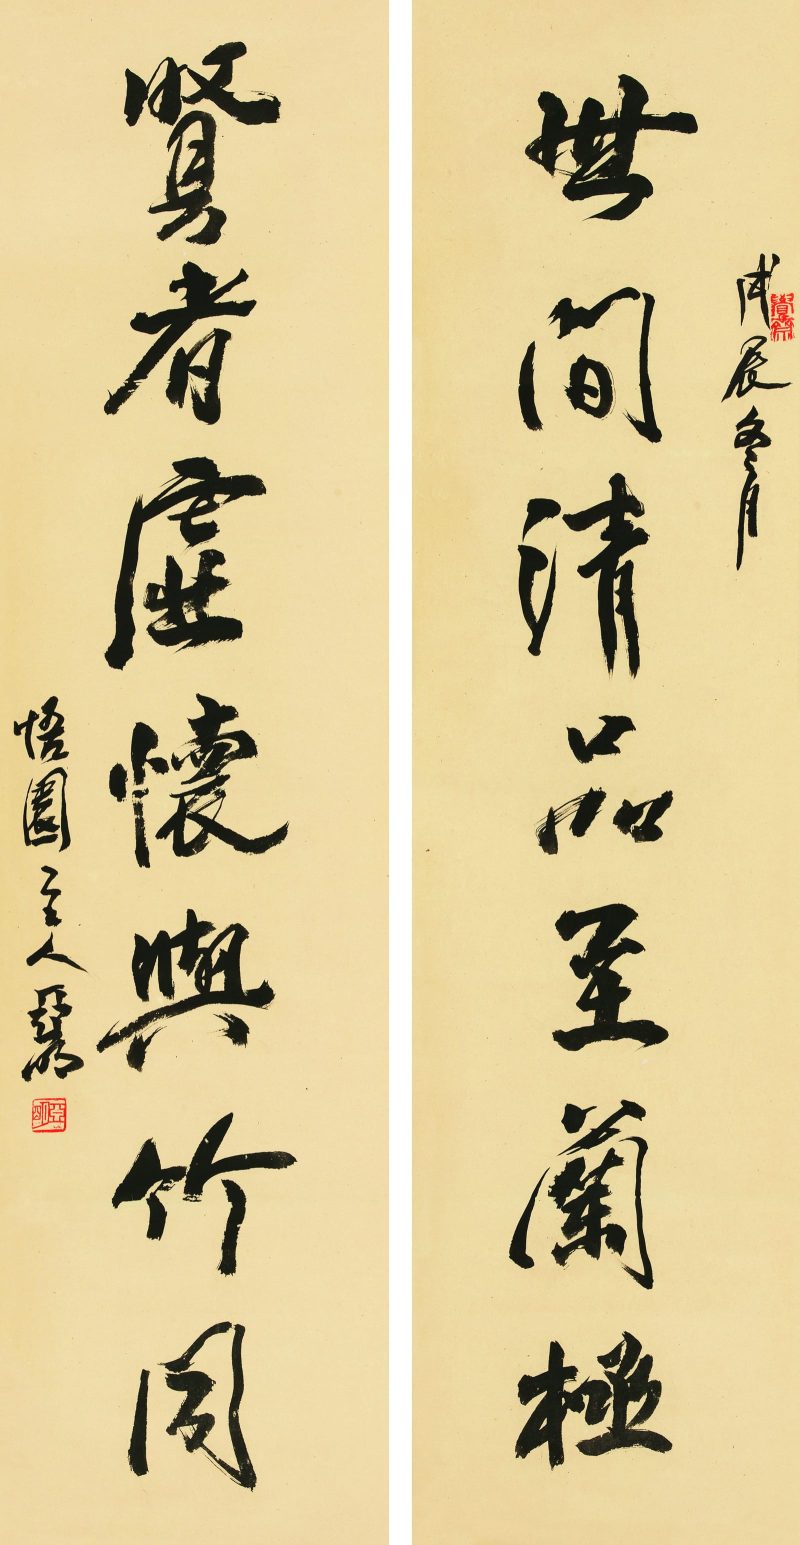 戊辰冬月
世間清品至蘭極
賢者虛懷與竹同
悟園主人亞明
亞明